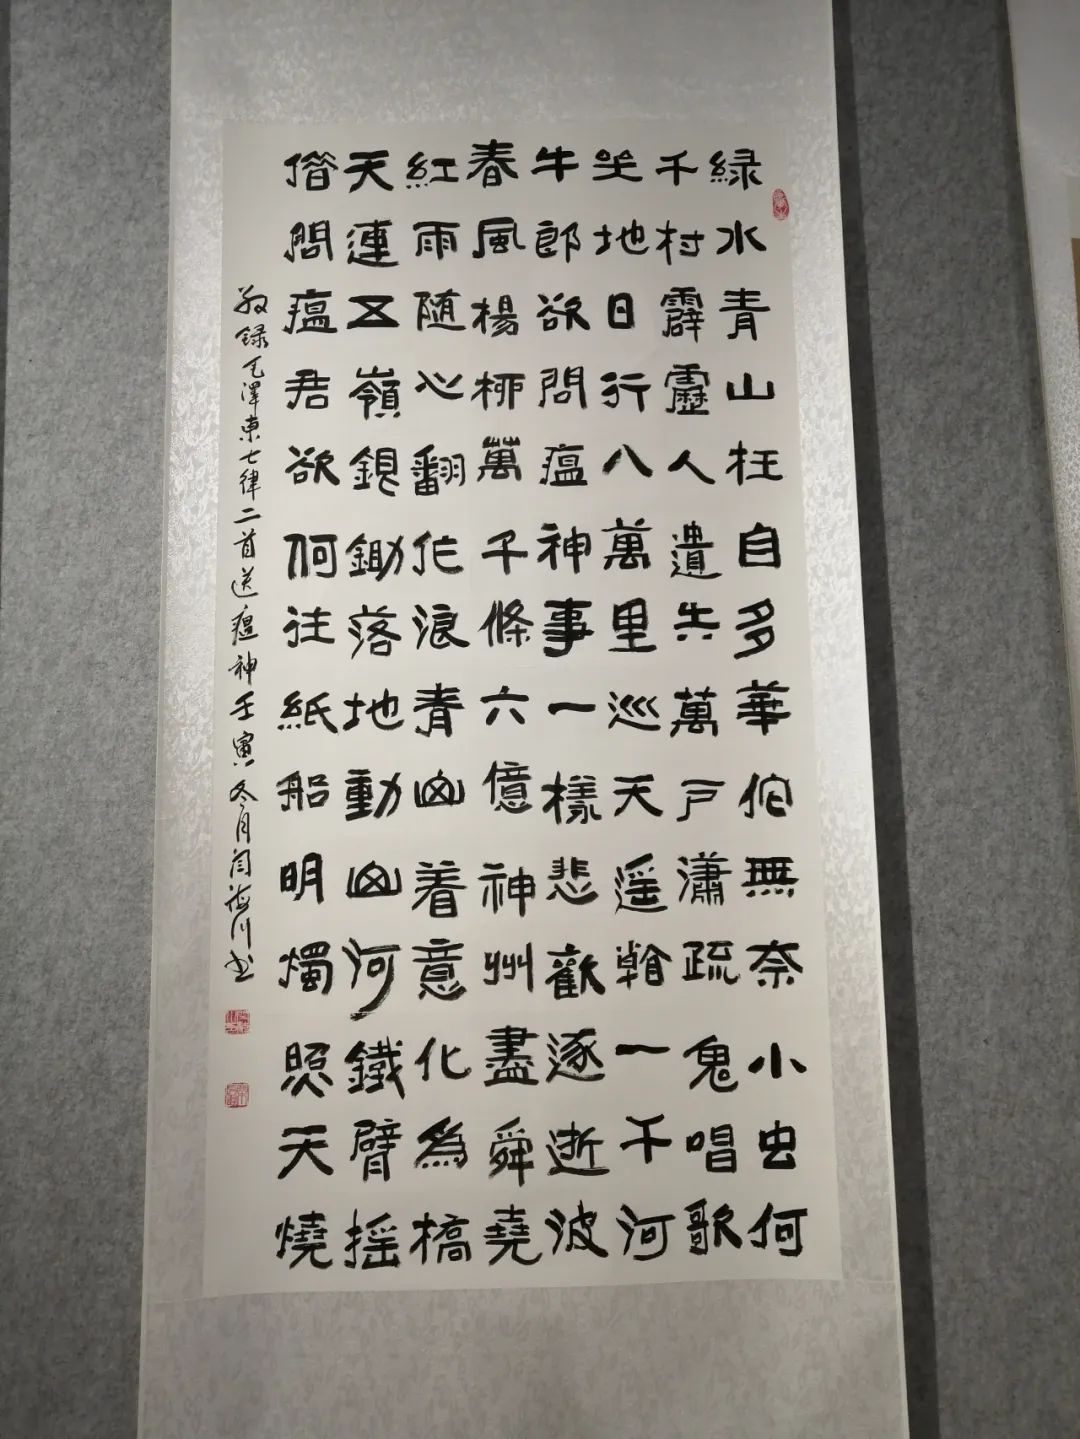 緑水青山枉自多華佗無奈小虫何
千村霹靂人遺失萬戶瀟疏鬼唱歌
坐地日行八萬里巡天遥看一千河
牛郎欲問瘟神事一樣悲歡逐逝波
春風楊柳萬千條六億神州盡舜堯
紅雨随心翻作浪青山着意化為橋
天連五嶺銀鋤落地動山河鐵臂摇
借問瘟君欲何往紙船明燭照天燒
敬録毛澤東七律二首送瘟神壬寅冬月闫海川书